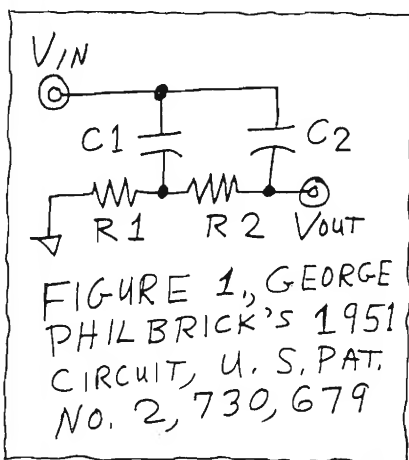 VIN
C1
C2
R1
R2
VOUT
FIGURE 1., GEORGE
PHILBRICK'S 1951
CIRCUIT, U. S. PAT.
NO. 2,730,679